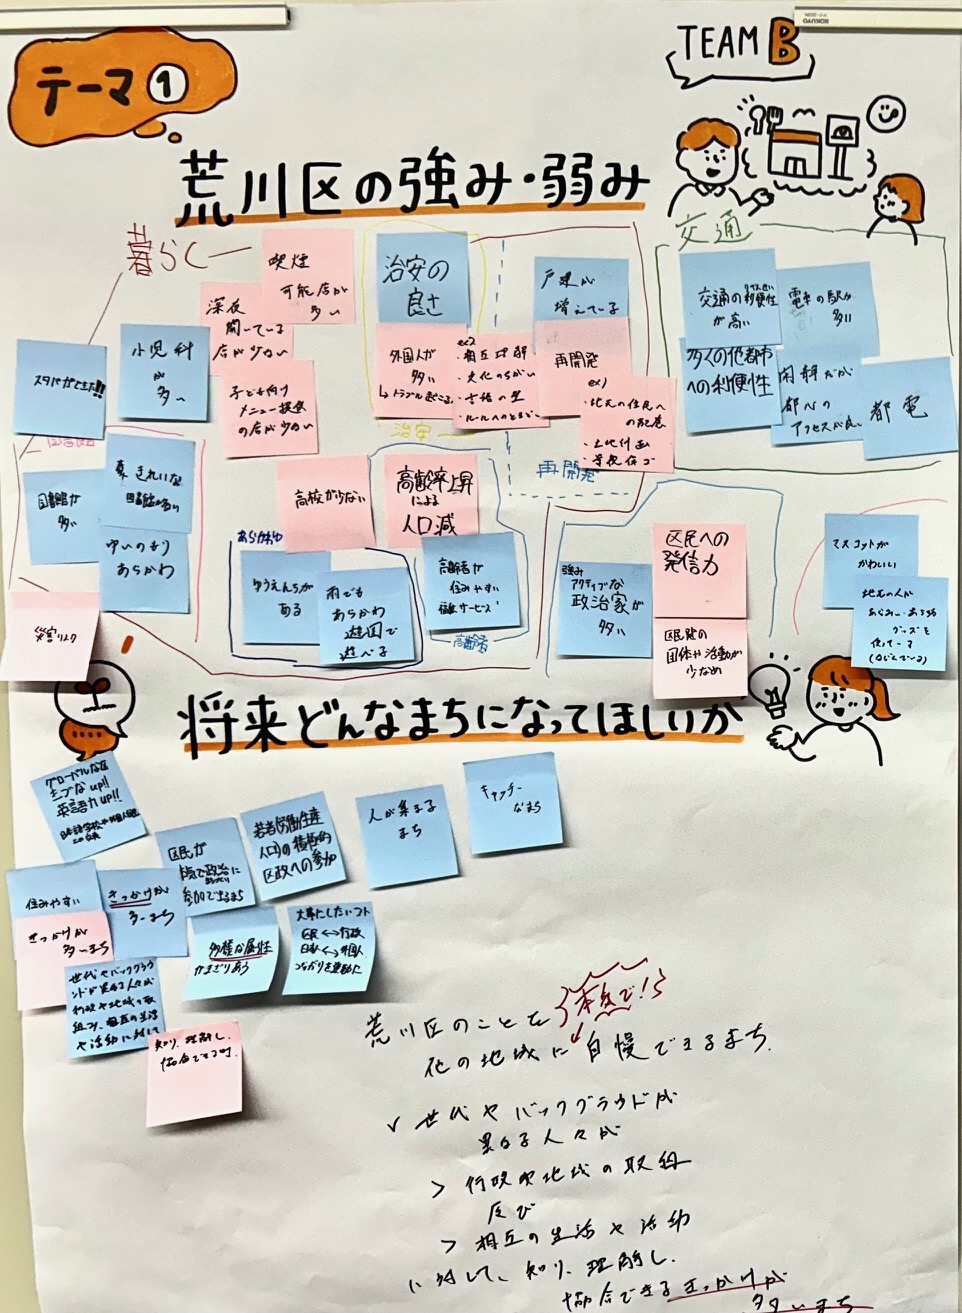 テーマ①
TEAM B
荒川区の強み・弱み
暮らし
喫煙
可能店が
多い
深夜
開いている
店が少ない
小児科
が
多い
スタバができた!!
子ども向け
メニュー提供
の店が少ない
治安の
良さ
外国人が
多い
↳トラブル起こる
ex2
・相互理解
・文化のちがい
・言語の壁
治安
戸建が
増えている
再開発
ex1
・地元の住民への
配慮
・土地計画
・景観保ゴ
再開発
交通
交通の利便性
が高い
電車の駅が
多い
多くの他都市
への利便性
閑静だが
都心の
アクセスが良い
都電
図書館
図書館が
多い
きれいな
図書館が多い
ゆいの森
あらかわ
災害リスク
高校が少ない
高齢率上昇
による
人口減
あらかわゆ
ゆうえんちが
ある
雨でも
あらかわ
遊園で
遊べる
高齢者が
住みやすい
福祉サービス
高齢者
強み
アクティブな
政治家が
多い
区民への
発信力
区民発の
団体や活動が
少なめ
マスコットが
かわいい
地元の人が
グッズを
使っている
将来どんなまちになってほしいか
グローバルな区
英語力up!!
区民が
政治に
参加できるまち
若者(労働生産
人口)の積極的
区政への参加
人が集まる
まち
キャッチー
なまち
住みやすい
きっかけが
多いまち
きっかけが
多いまち
多様な属性
がまざりあう
大事にしたいコト
区民↔行政
日本人↔外国人
つながりを豊かに
世代やバックグラウ
ンドが異なる人々が
行政や地域の取
組み、相互の生活
や活動に対して
知り、理解し、
協合できる町
荒川区のことを
本気で!
他の地域に自慢できるまち.
✓世代やバックグラウンドが
異なる人々が
>行政や地域の取組
及び
>相互の生活や活動
に対して、知り、理解し、
協合できるきっかけが
多いまち